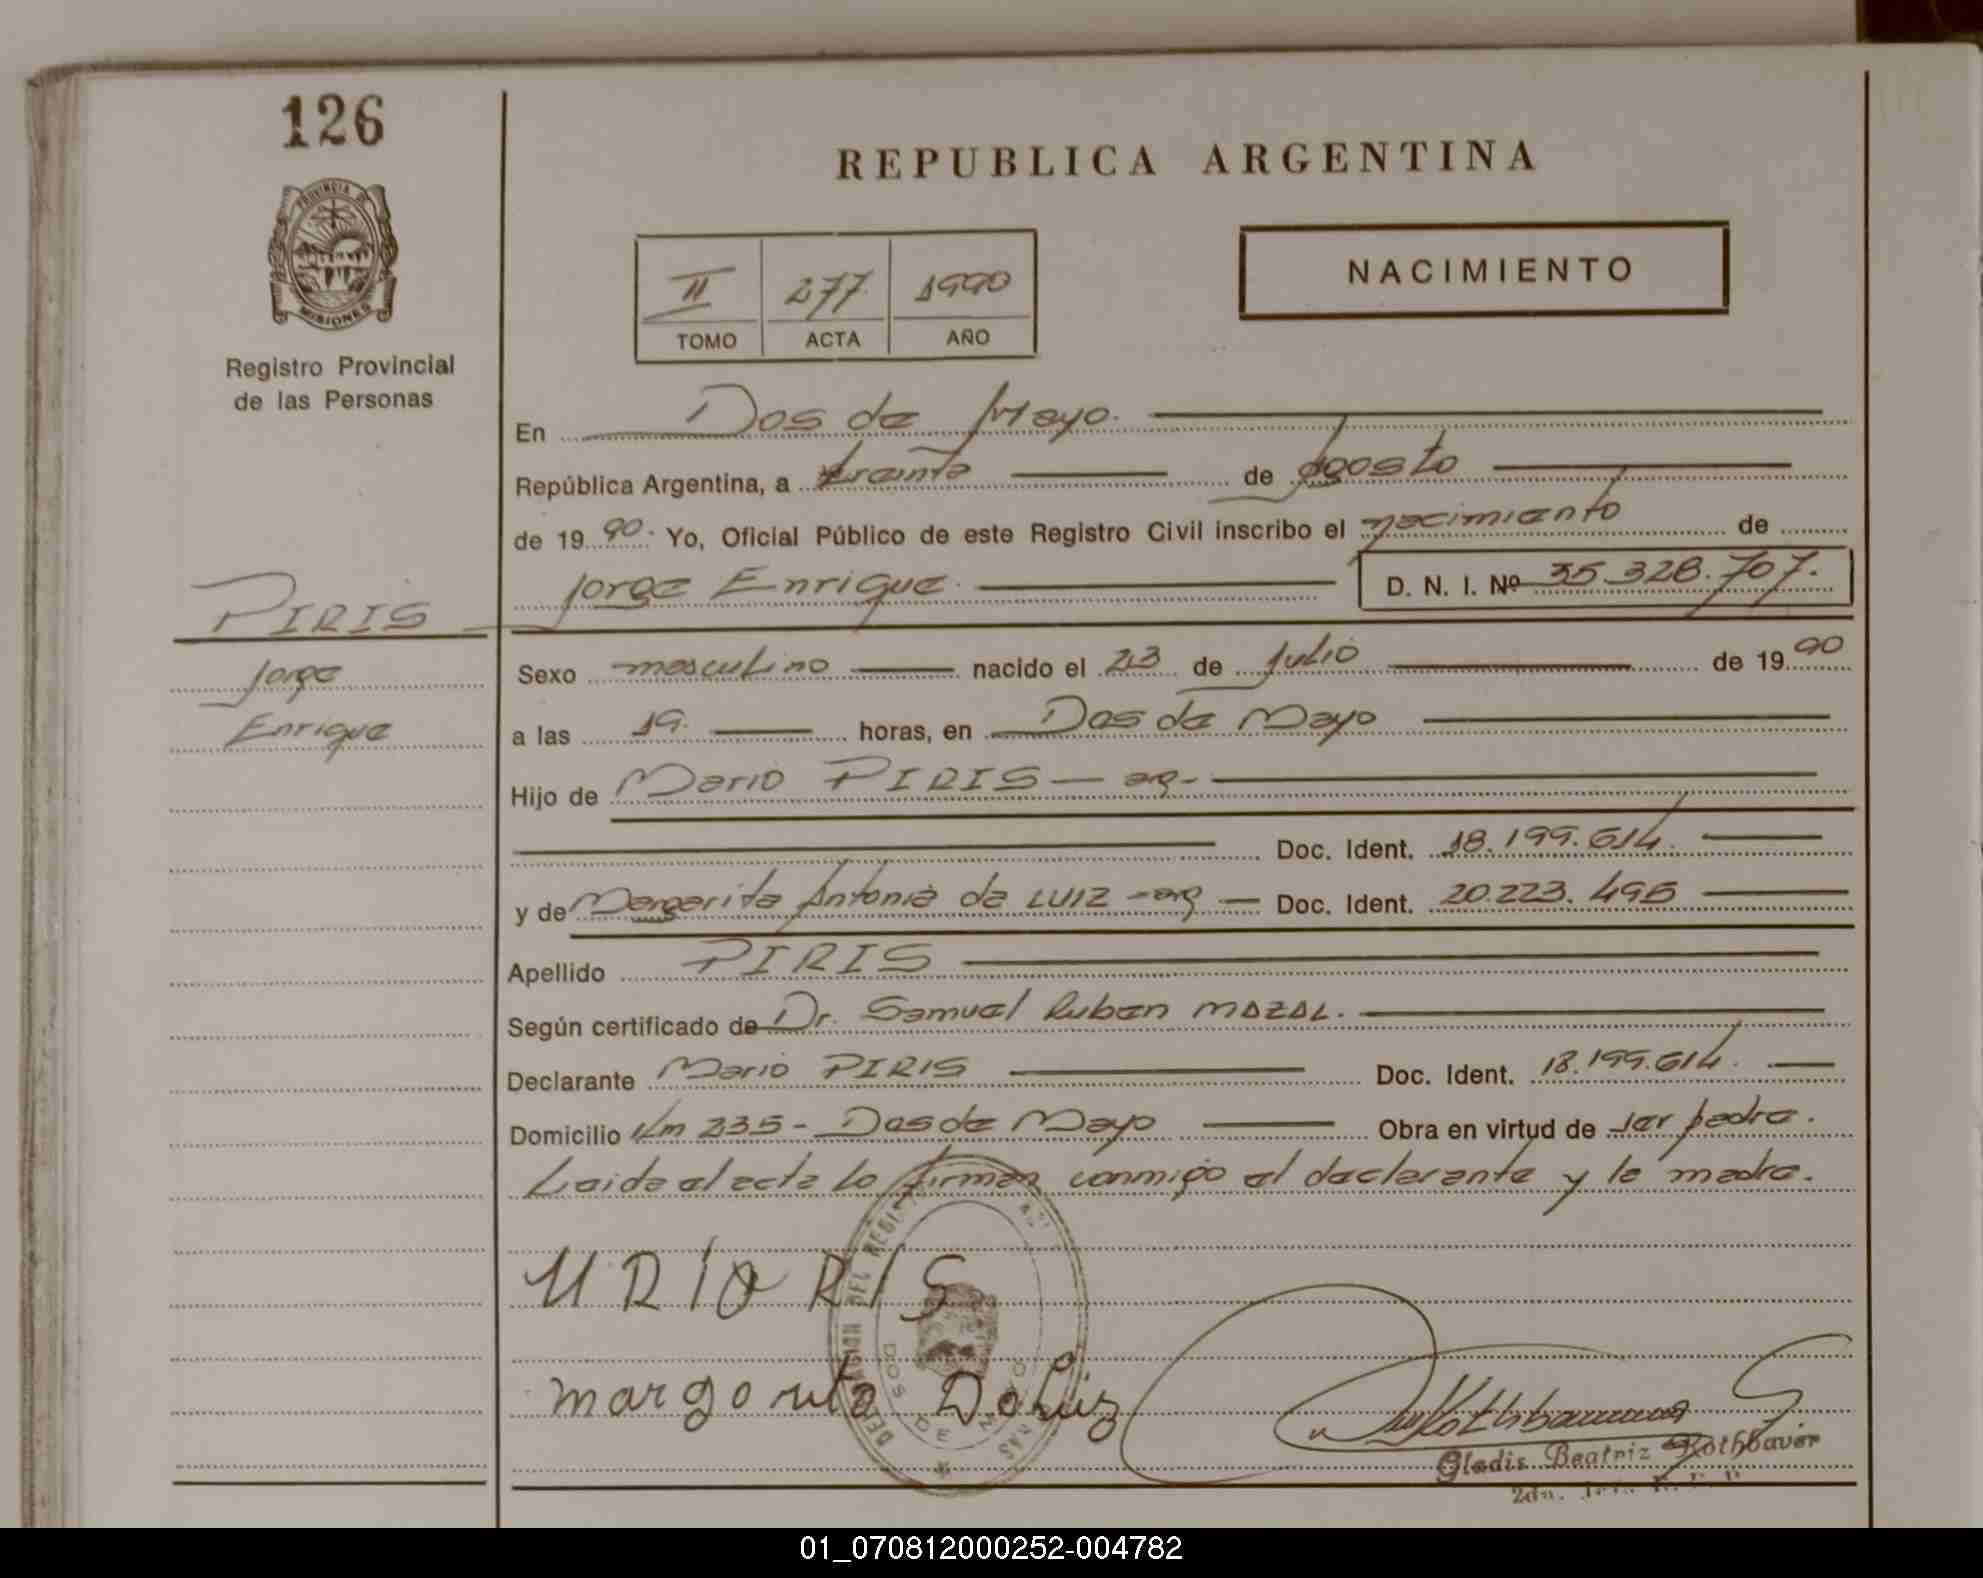 126
PROVINCIA DE
MISIONES
Registro Provincial
de las Personas
REPUBLICA ARGENTINA
II 277 1990
TOMO ACTA AÑO
NACIMIENTO
En Dos de Mayo.
República Argentina, a treinta de Agosto
de 19 90. Yo, Oficial Público de este Registro Civil inscribo el nacimiento de
Jorge Enrique. D. N. I. Nº 35.328.707.
PIRIS
Jorge
Enrique
Sexo masculino nacido el 23 de Julio de 19 90
a las 19. horas, en Dos de Mayo
Hijo de Mario PIRIS — arg-
Doc. Ident. 18.199.614.
y de Margarita Antonia de LUIZ -arg Doc. Ident. 20.223.495
Apellido PIRIS
Según certificado de Dr. Samuel Ruben MAZAL.
Declarante Mario PIRIS Doc. Ident. 18.199.614.
Domicilio Km 235 - Dos de Mayo Obra en virtud de ser padre.
Leida el acta lo firman conmigo el declarante y la madre.
MRIO RIS
DOS DE MAYO
margorita DoLuiz
Gladis Beatriz Rothbauer
01_070812000252-004782